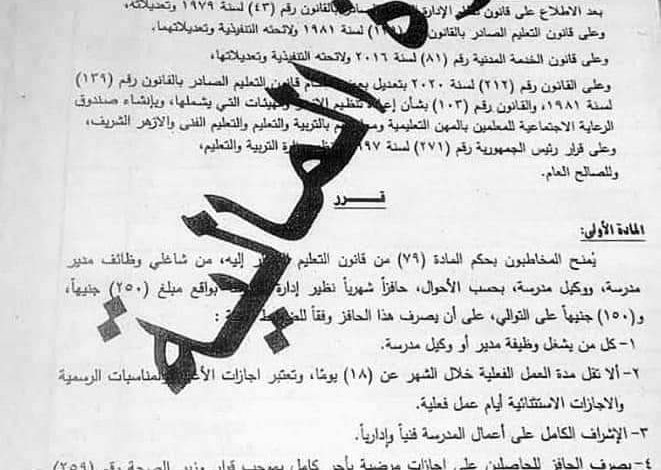 بعد الاطلاع على قانون الإدارة الصادر بالقانون رقم (٤٣) لسنة ١٩٧٩ وتعديلاته،
وعلى قانون التعليم الصادر بالقانون لسنة ١٩٨١ ولائحته التنفيذية وتعديلاتهما،
وعلى قانون الخدمة المدنية رقم (٨١) لسنة ٢٠١٦ ولائحته التنفيذية وتعديلاتها،
وعلى القانون رقم (٢١٢) لسنة ٢٠٢٠ بتعديل بعض قانون التعليم الصادر بالقانون رقم (١٣٩)
لسنة ١٩٨١، والقانون رقم (١٠٣) بشأن إعادة تنظيم والهيئات التي يشملها، وبإنشاء صندوق
الرعاية الاجتماعية للمعلمين بالمهن التعليمية بالتربية والتعليم والتعليم الفنى والازهر الشريف،
وعلى قرار رئيس الجمهورية رقم (٢٧١) لسنة التربية والتعليم،
وللصالح العام.
قـــرر
المادة الأولى:
يُمنح المخاطبون بحكم المادة (٧٩) من قانون التعليم إليه، من شاغلي وظائف مدير
مدرسة، ووكيل مدرسة، بحسب الأحوال، حافزاً شهرياً نظير إدارة بواقع مبلغ (٢٥٠) جنيهاً،
و(١٥٠) جنيهاً على التوالي، على أن يصرف هذا الحافز وفقاً :
١- كل من يشغل وظيفة مدير أو وكيل مدرسة.
٢- ألا تقل مدة العمل الفعلية خلال الشهر عن (١٨) يومًا، وتعتبر اجازات والمناسبات الرسمية
والاجازات الاستثنائية أيام عمل فعلية.
٣- الإشراف الكامل على أعمال المدرسة فنياً وإدارياً.
٤- يصرف الحافز للحاصلين على اجازات مرضية بأجر كامل بموجب قرار وزير الصحة رقم (٢٥٩)
المالية